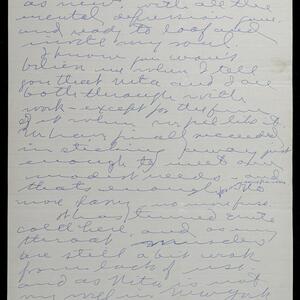 as new, with all the
mental depression gone
and ready to loaf and
invite my soul.
I know you won't
believe me when I tell
you that Nita and I are
both through with
work - except for the fun
of it when we feel like it.
We have just succeeded
in
enough to meet our
modest needs, and
that's enough. No
more
It has turned quite
cold here, and as my
throat muscles
are still a bit weak
from lack of use
and as Nita is not